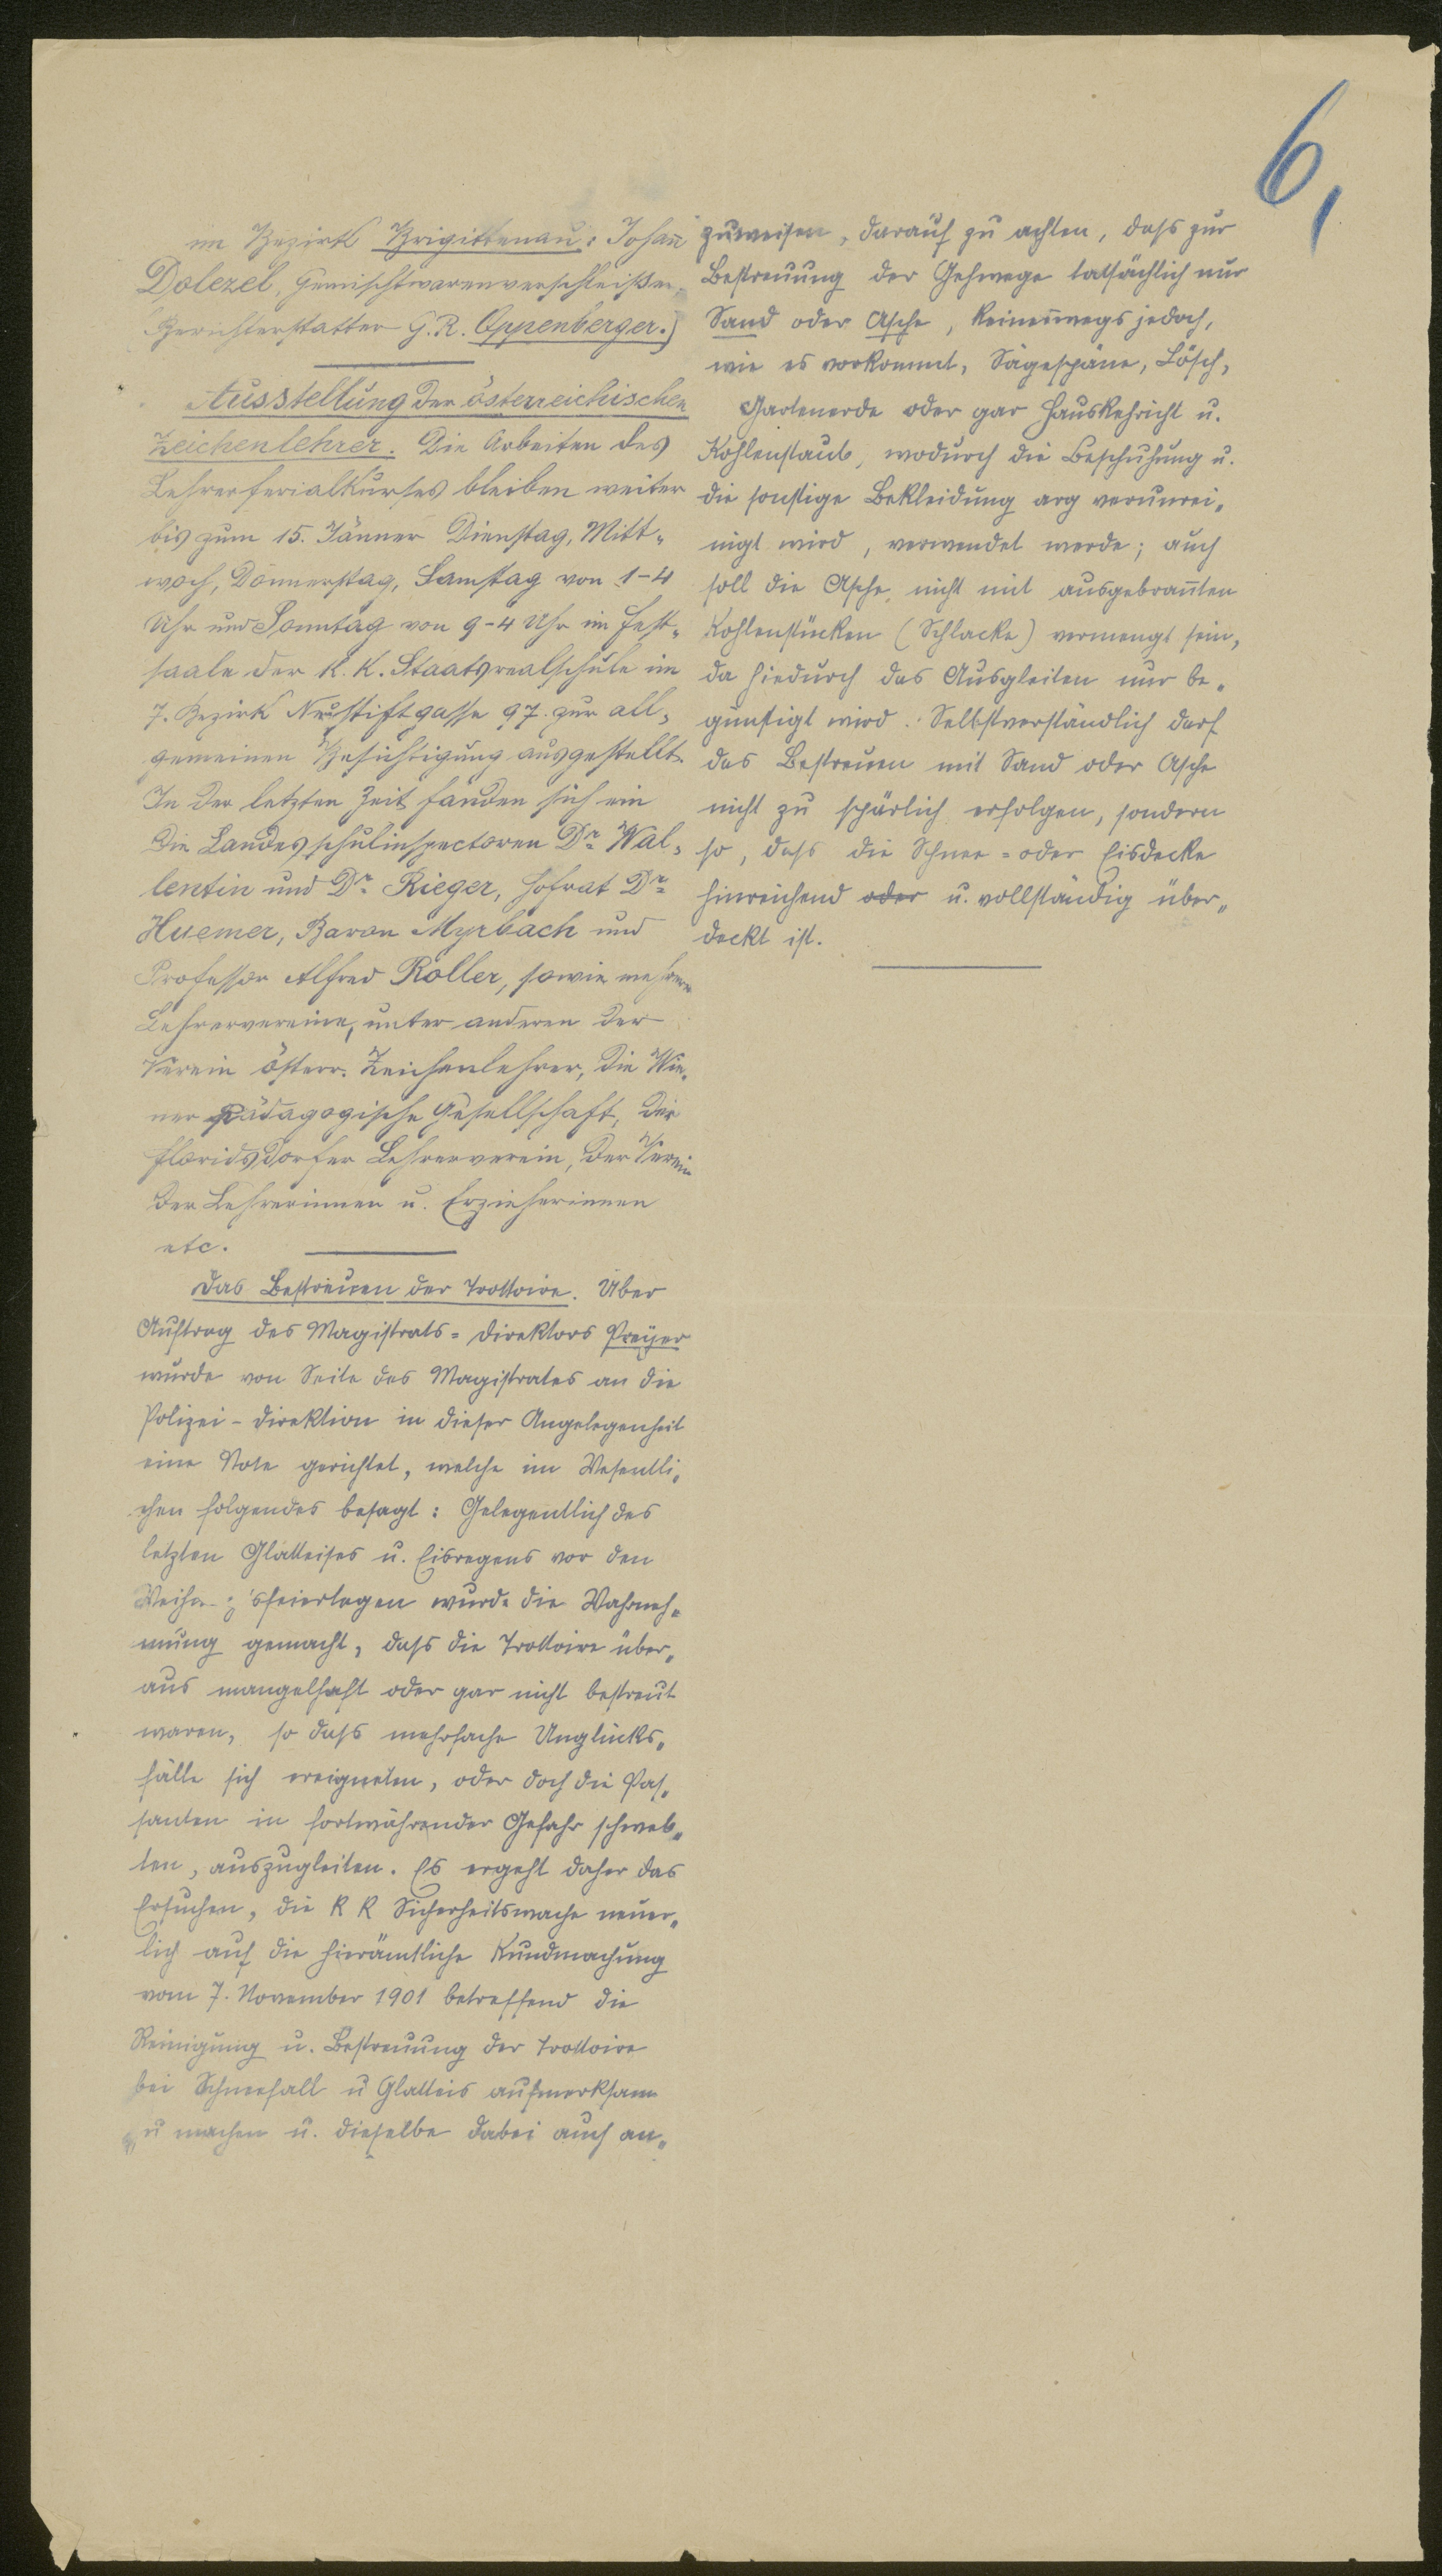 6,
im Bezirk Brigittenau: Johann̄
Dolezel, Gemischtwarenverschleißer.
Berichterstatter G.R. Oppenberger.)
Ausstellung der österreichischen
Zeichenlehrer. Die Arbeiten des
Lehrerferialkurses bleiben weiter
bis zum 15. Jänner Dienstag, Mitt-
woch, Donnerstag, Samstag von 1-4
Uhr und Sonntag von 9-4 Uhr im Fest-
saale der k.k. Staatsrealschule im
7. Bezirk Neustiftgasse 97. zur all-
gemeinen Besichtigung ausgestellt.
In der letzten Zeit fanden sich ein
die Landesschulinspectoren Dr. Wal-
lentin und Dr. Rieger, Hofrat Dr.
Huemer, Baron Myrbach und
Professor Alfred Roller, sowie mehrere
Lehrervereine, unter anderen der
Verein österr. Zeichenlehrer, die Wie-
ner pädagogische Gesellschaft, der
Floridsdorfer Lehrerverein, der Verein
der Lehrerinnen u. Erzieherinnen
etc.
Das Bestreuen der Trottoire. Über
Auftrag des Magistrats-Direktors Preyer
wurde von Seite des Magistrates an die
Polizei-Direktion in dieser Angelegenheit
eine Note gerichtet, welche im Wesentli-
chen folgendes besagt: Gelegentlich des
letzten Glatteises u. Eisregens vor den
Weihn sfeiertagen wurde die Wahrneh-
mung gemacht, dass die Trottoire über-
aus mangelhaft oder gar nicht bestreut
waren, so dass mehrfache Unglücks-
fälle sich ereigneten, oder doch die Pas-
santen in fortwährender Gefahr schweb-
ten, auszugleiten. Es ergeht daher das
Ersuchen, die k k Sicherheitswache neuer-
lich auf die hierämtliche Kundmachung
vom 7. November 1901 betreffend die
Reinigung u. Bestreuung der Trottoire
bei Schneefall u Glatteis aufmerksam
zu machen u. dieselbe dabei auch an-
zuweisen, darauf zu achten, dass zur
Bestreuung der Gehwege tatsächlich nur
Sand oder Asche, keineswegs jedoch,
wie es vorkommt, Sägespäne, Lösch,
Gartenerde oder gar Hauskehricht u.
Kohlenstaub, wodurch die Beschuhung u.
die sonstige Bekleidung arg verunrei-
nigt wird, verwendet werde; auch
soll die Asche nicht mit ausgebran̄ten
Kohlenstücken (Schlacke) vermengt sein,
da hiedurch das Ausgleiten nur be-
günstigt wird. Selbstverständlich darf
das Bestreuen mit Sand oder Asche
nicht zu spärlich erfolgen, sondern
so, dass die Schnee- oder Eisdecke
hinreichend oder u. vollständig über-
deckt ist.